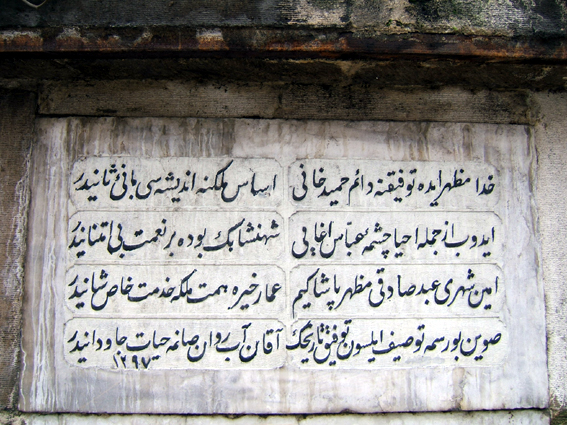 خدا مظهر ایده توفیقنه دائم حمید خانی
اساس ملکنه اندیشه‌سی بانئ ثانیدر
ایدوب از جمله احیا چشمهٔ عباس اغایی
شهنشابك بوده بر نعمت بی امتنانیدر
امین شهری عبد صادقی مظهر پاشا کیم
عمار خیره همت ملکه خدمت خاص شانیدر
صوین بورسمه توصیف ایلسون توفیق تاریخك
آقان آب روان صانمه حیات جاودانیدر
۱۲۹۷